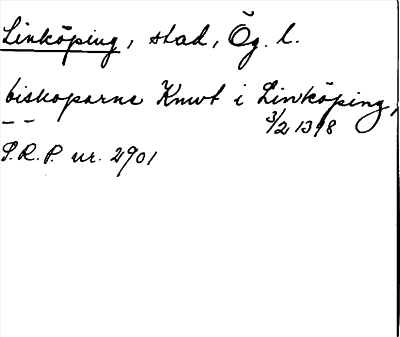 Linköping, stad, Ög. l.
biskoparne Knwt i Linköping,
– – 3/2 1398
S.R.P. nr. 2901